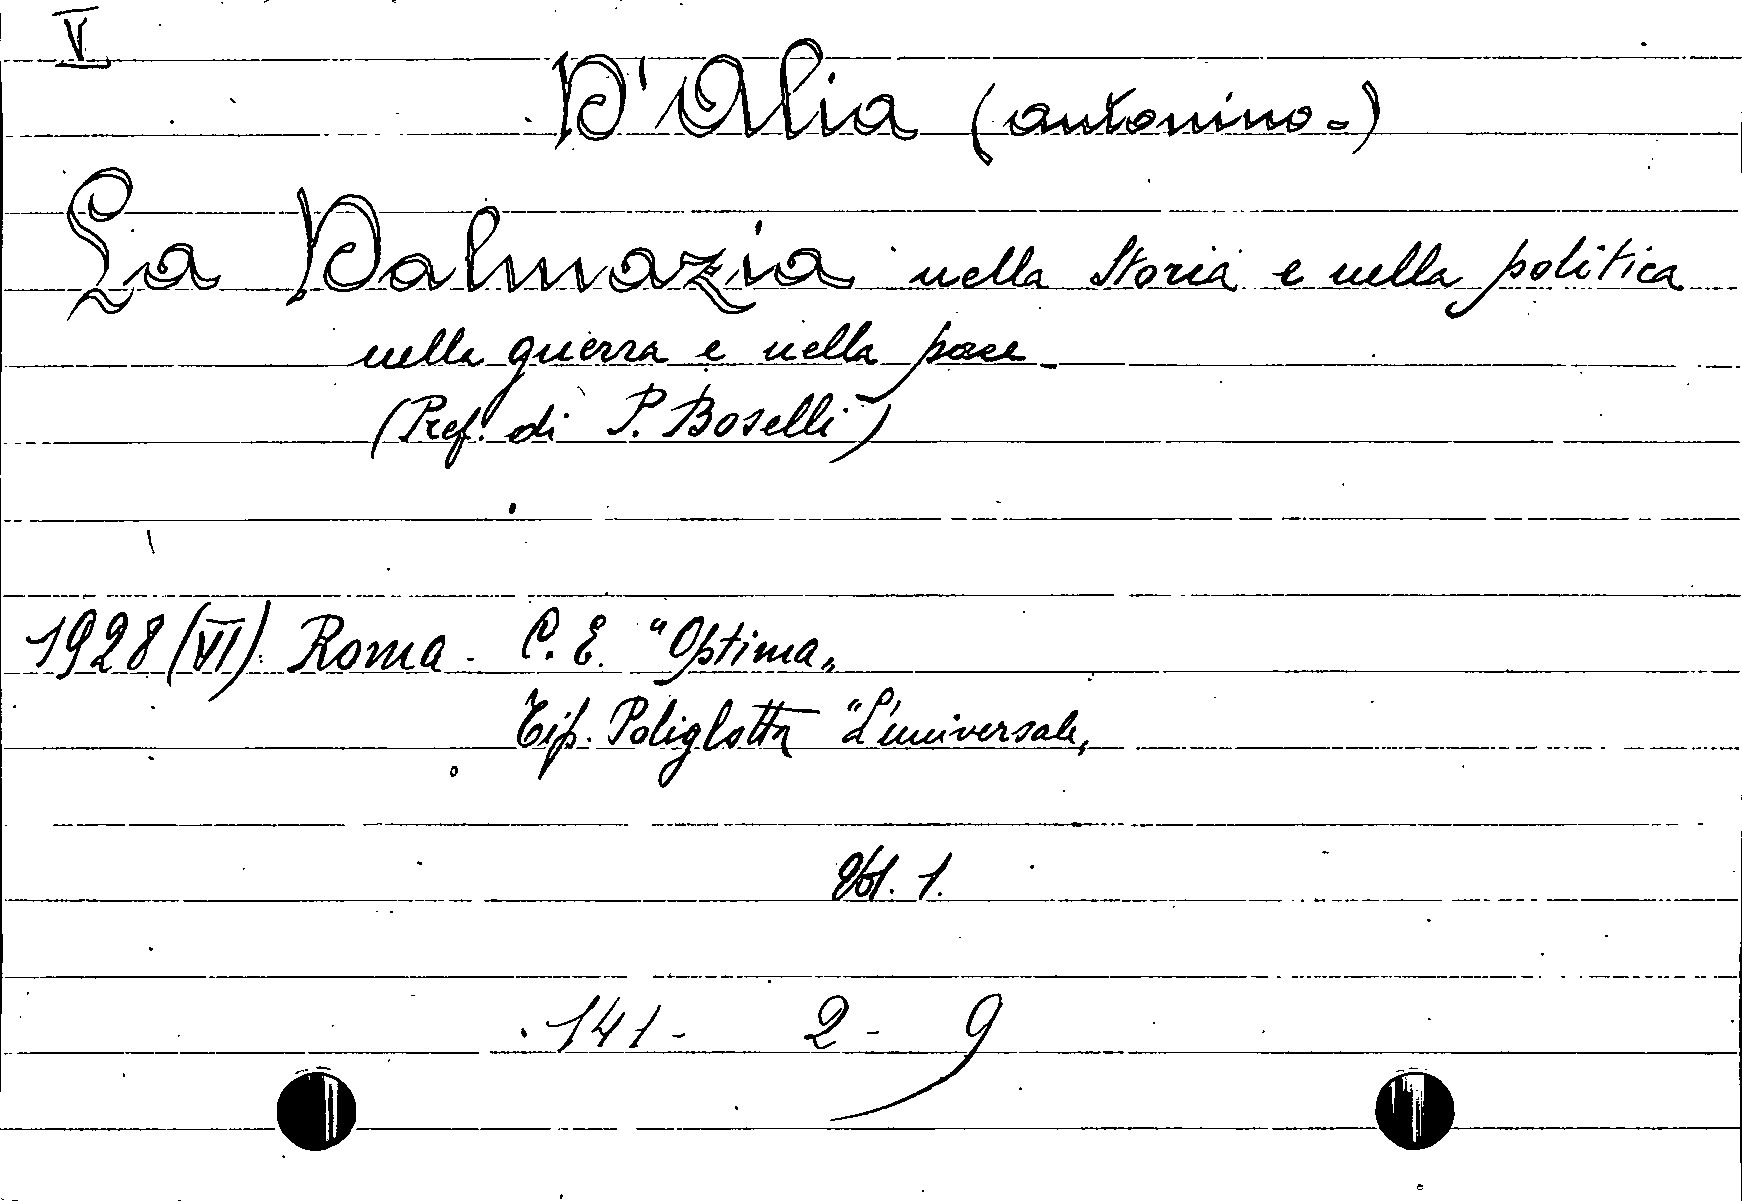 V
D'Alia (Antonino-)
La Dalmazia nella Storia e nella politica
nella guerra e nella pace
(Pref. di P. Boselli)
1928 (VI). Roma - C. E. "Optima„
Tip. Poliglotta "L'universale„
Vol. 1.
141- 2- 9